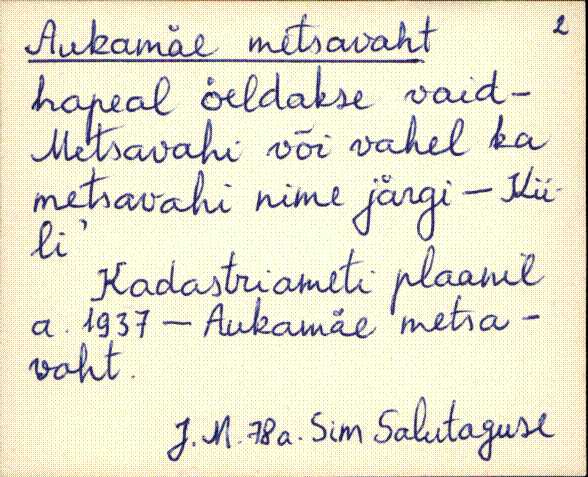 2
Aukamäe metsavaht
hapeal öeldakse vaid -
Metsavahi või vahel ka
metsavahi nime järgi - Kii-
li'
Kadastriameti plaanil
a. 1937 - Aukamäe metsa -
vaht.
J. M. 78a. Sim Salutaguse